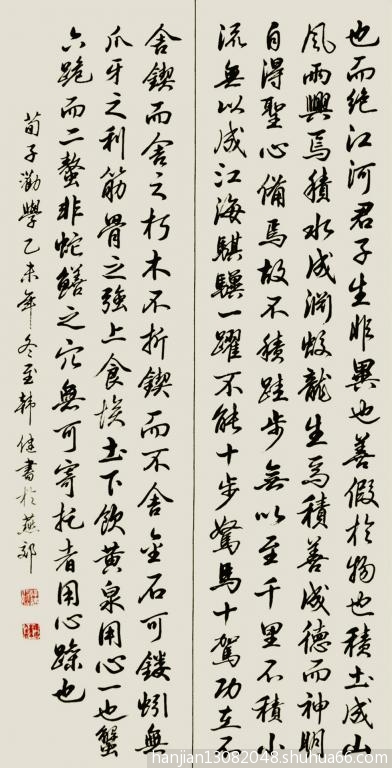 也而絕江河君子生非異也善假於物也積土成山
風雨興焉積水成淵蛟龍生焉積善成德而神明
自得聖心備焉故不積跬步無以至千里不積小
流無以成江海騏驥一躍不能十步駑馬十駕功在不
舍鍥而舍之朽木不折鍥而不舍金石可鏤蚓無
爪牙之利筋骨之強上食埃土下飲黃泉用心一也蟹
六跪而二螯非蛇鱔之穴無可寄托者用心躁也
荀子勸學乙未年冬至韓健書於燕郊
hanjian13082048.shuhua66.com